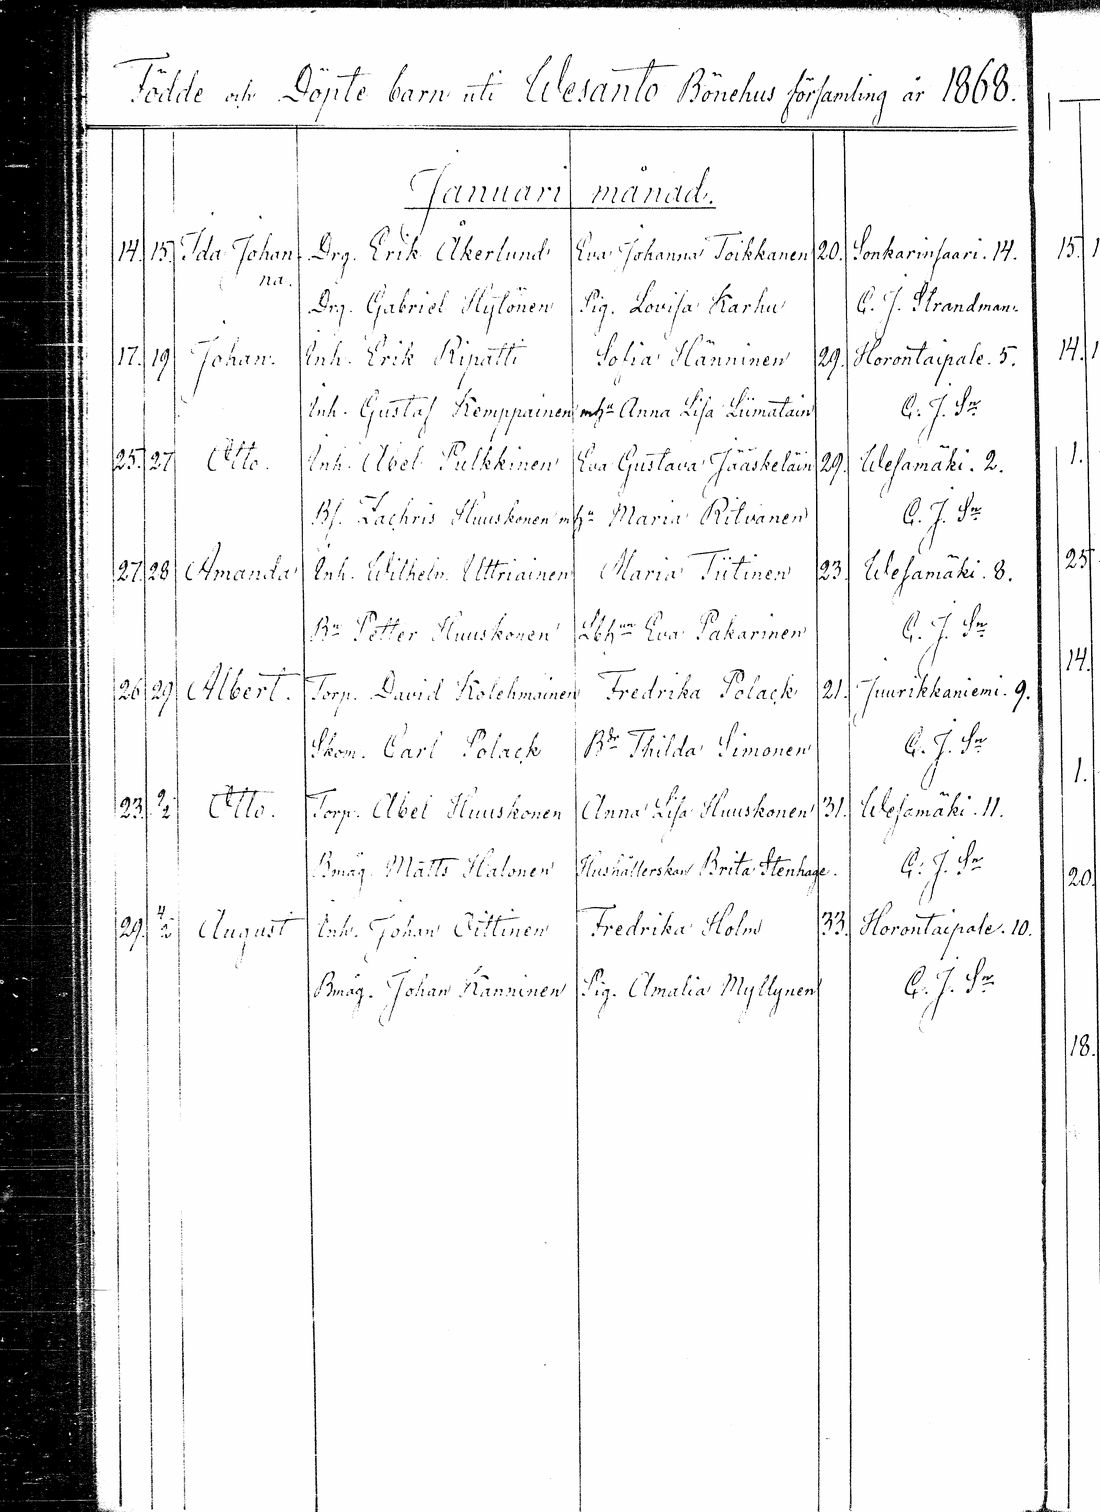 Födde och Döpte barn uti Wesanto Bönehus församling år 1868.
Januari månad.
14. 15. Ida Johan- Drg. Erik Åkerlund Eva Johanna Toikkanen 20. Sonkarinsaari. 14.
na.
Drg. Gabriel Hytönen Pig. Lovisa Karhu C. J. Strandman.
17. 19 Johan. Inh. Erik Ripatti Sofia Hänninen 29. Horontaipale. 5.
Inh. Gustaf Kemppainen m hu Anna Lisa Liimatain C. J. Sn
25. 27 Otto. Inh. Abel Pulkkinen Eva Gustava Jääskeläin 29. Wesamäki. 2.
Bs. Zachris Huuskonen m hu Maria Ritvanen C. J. Sn
27. 28 Amanda Inh. Wilhelm Uttriainen Maria Tiitinen 23. Wesamäki. 8.
Bn Petter Huuskonen Eva Pakarinen C. J. Sn
26 29 Albert. Torp. David Kolehmainen Fredrika Polack 21. Juurikkaniemi. 9.
Skom. Carl Polack Bdr Thilda Simonen C. J. Sn
23. 2/2 Otto. Torp. Abel Huuskonen Anna Lisa Huuskonen 31. Wesamäki. 11.
Bmåg. Matts Halonen Hushållerskan Brita Stenhage. C. J. Sn
29. 4/2 August Inh. Johan Oittinen Fredrika Holm 33. Horontaipale. 10.
Bmåg. Johan Kanninen Pig. Amalia Myllynen C. J. Sn
15. 1
14. 1
1.
25
14.
1.
20.
18.